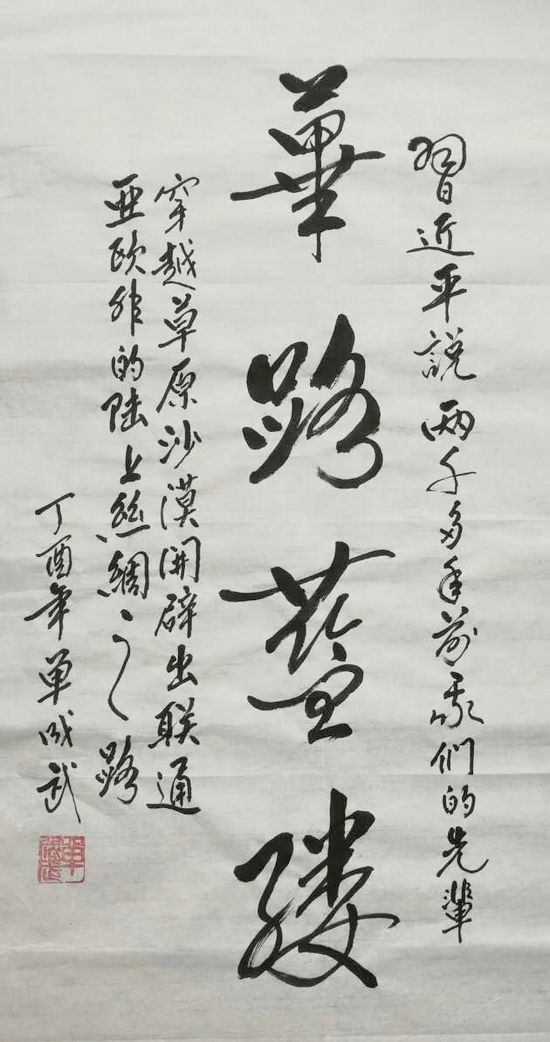 習近平説两千多年前我們的先輩
蓽路藍縷
穿越草原沙漠開辟出联通
亚欧非的陆上絲綢之路
丁酉年单成武